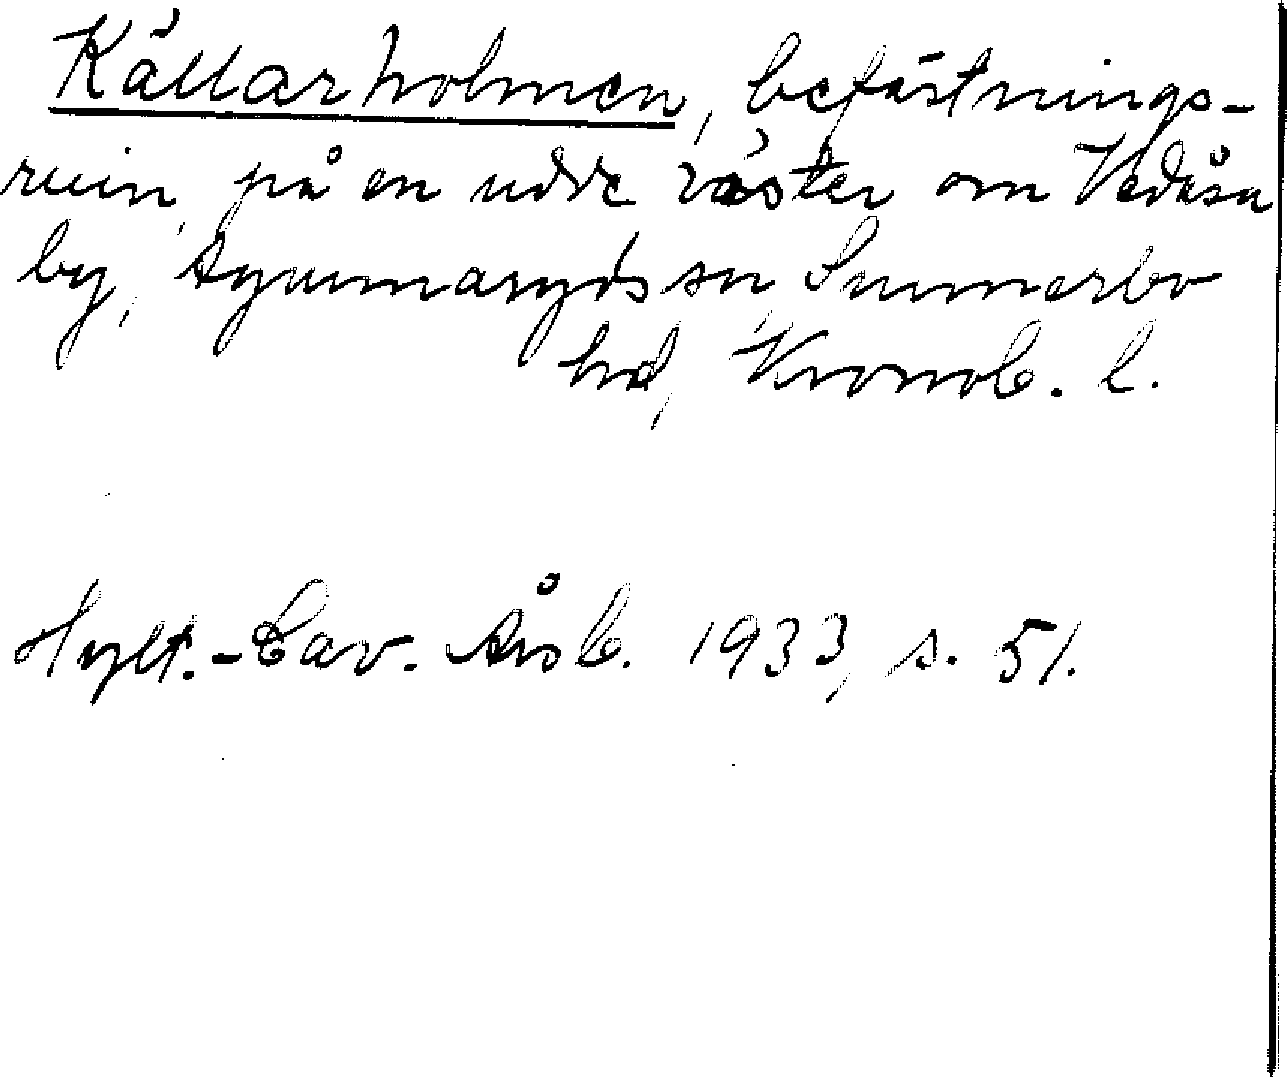 Källarholmen, befästnings-
ruin, på en udde väster om Vedåsa
by, Agunnaryds sn, Sunnerbo
hd, Kronob. l.
Hylt.-Cav. Årsb. 1933, s. 51.